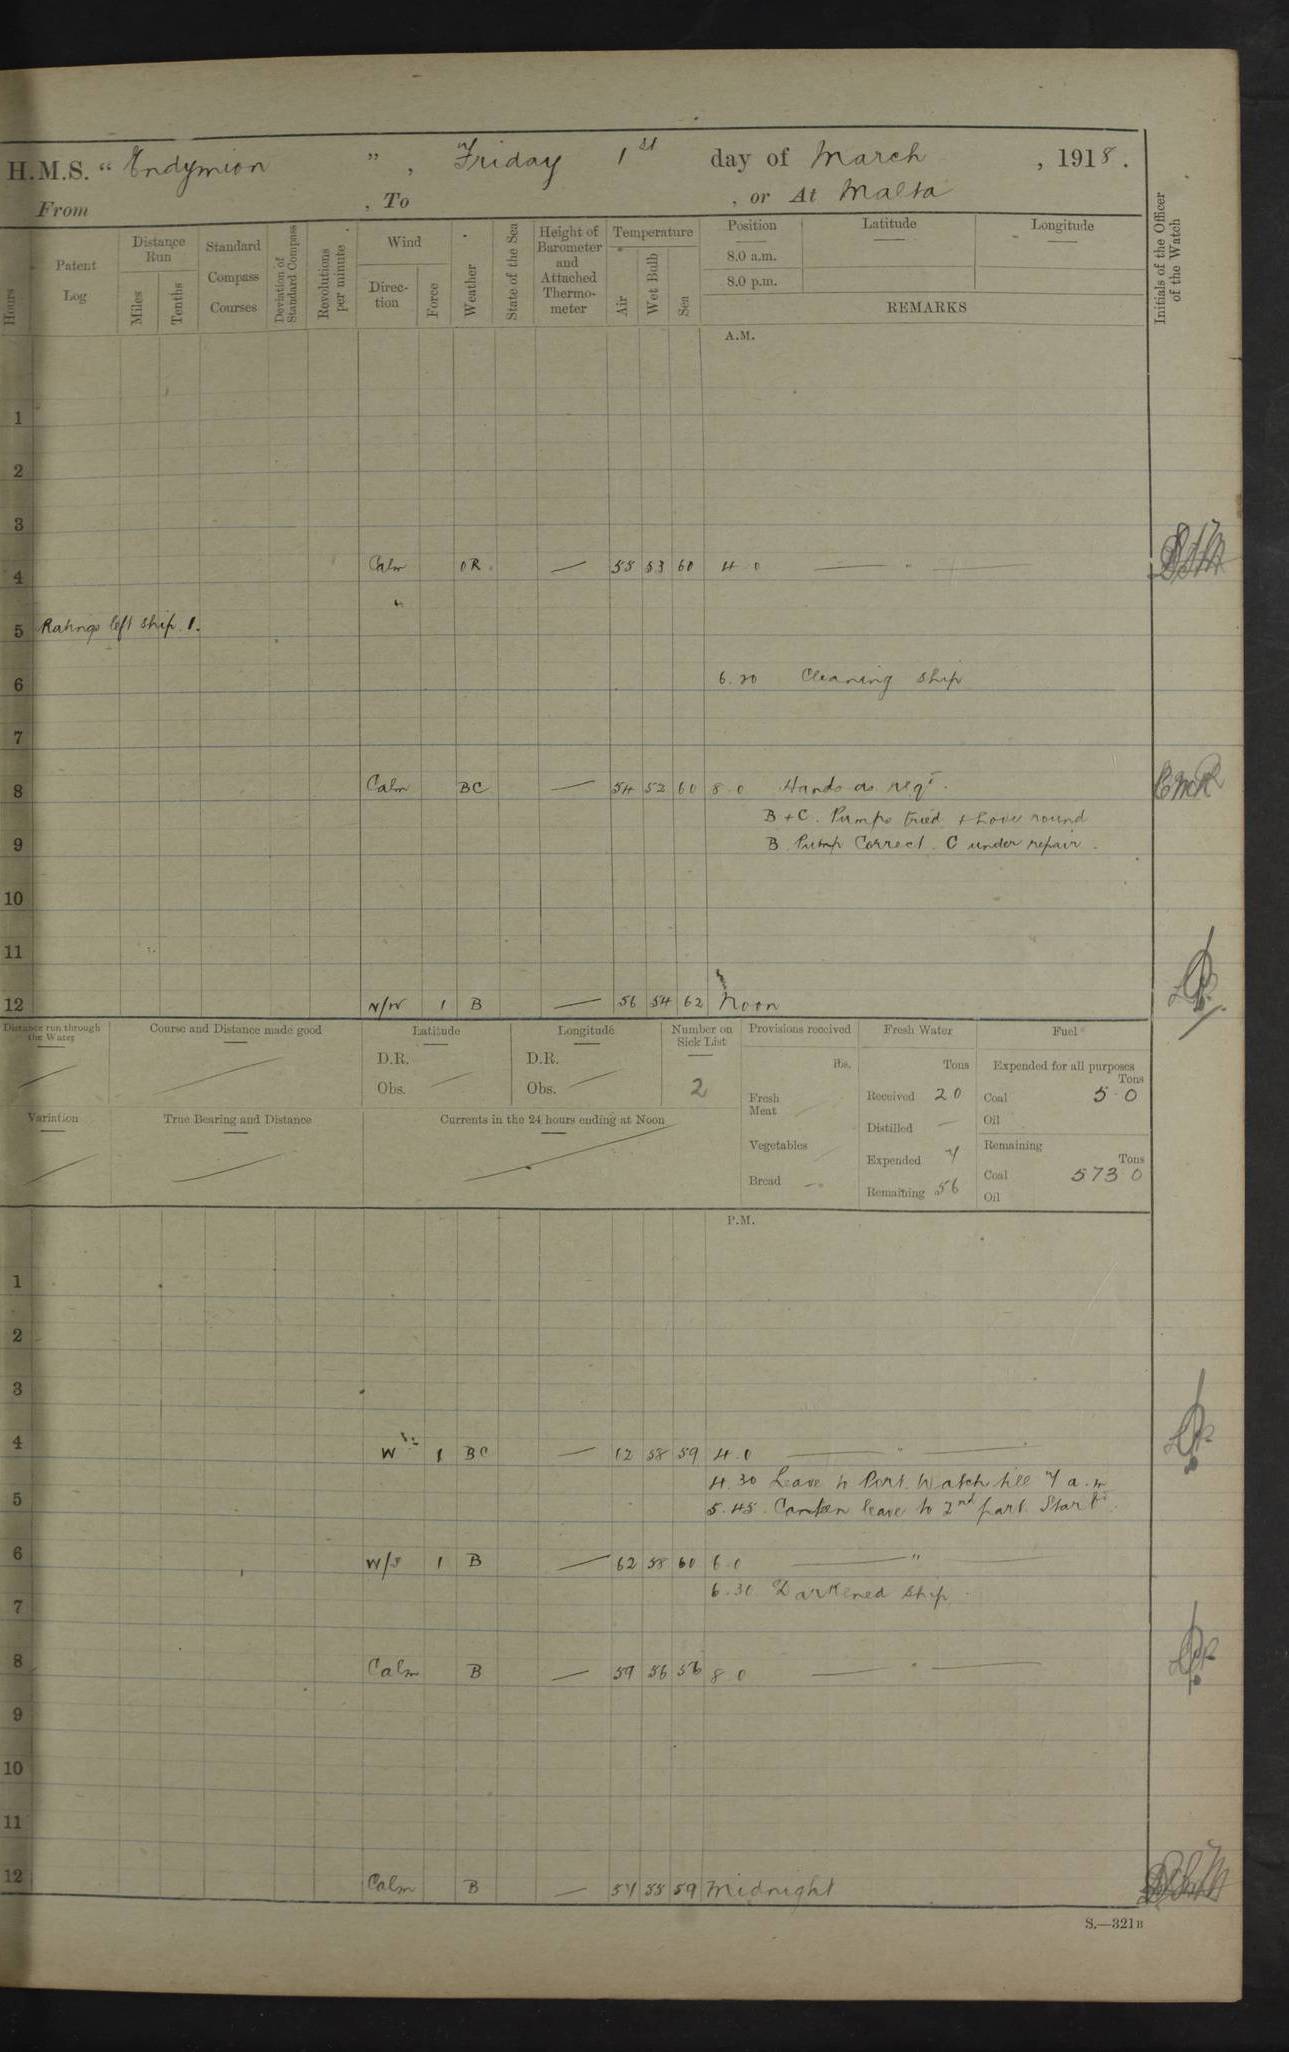 H.M.S. "Endymion", Friday 1st day of March, 1918.
From , To , or At Malta
Hours
Patent Log
Distance Run
Miles
Tenths
Standard Compass Courses
Deviation of Standard Compass
Revolutions per minute
Wind
Direction
Force
Weather
State of the Sea
Height of Barometer and Attached Thermometer
Temperature
Air
Wet Bulb
Sea
Position
Latitude
Longitude
8.0 a.m.
8.0 p.m.
REMARKS
Initials of the Officer of the Watch
A.M.
1
2
3
4 Calm OR — 55 53 60 4 0 — " —
5 Ratings left ship 1.
6 6.20 Cleaning ship
7
8 Calm BC — 54 52 60 8 0 Hands as reqd.
B + C. Pumps tried + hove round
9 B. Pump Correct. C under repair.
10
11
12 N/W 1 B — 56 54 62 Noon
Distance run through the Water
Course and Distance made good
Latitude
D.R.
Obs.
Longitude
D.R.
Obs.
Number on Sick List
2
Provisions received
lbs.
Fresh Meat
Vegetables
Bread —
Fresh Water
Tons
Received 20
Distilled —
Expended 7
Remaining 56
Fuel
Expended for all purposes
Tons
Coal 5 0
Oil
Remaining
Tons
Coal 573 0
Oil
Variation
True Bearing and Distance
Currents in the 24 hours ending at Noon
P.M.
1
2
3
4 W 1 BC — 58 59 4.0 — " —
4.30 Leave to Port Watch till 7 a.m
5 5.45 Canteen leave to 2nd part Starbd.
6 W/S 1 B — 62 58 60 6.0 — " —
6.30 Darkened ship.
7
8 Calm B — 56 8 0 — " —
9
10
11
12 Calm B — 55 59 Midnight
S.—321B